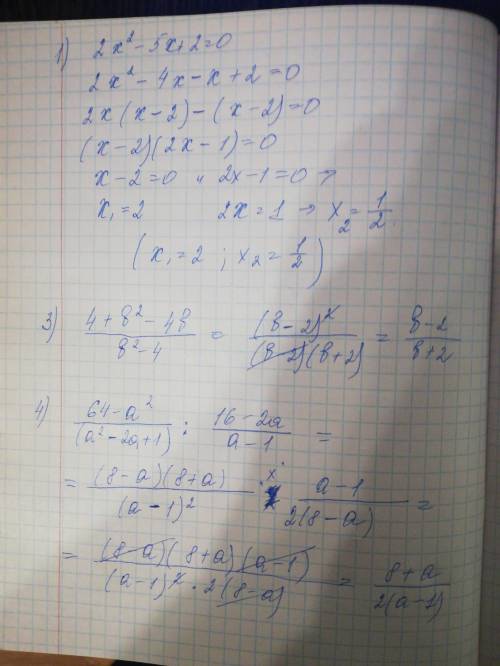 1) 2x² - 5x + 2 = 0
2x² - 4x - x + 2 = 0
2x(x - 2) - (x - 2) = 0
(x - 2)(2x - 1) = 0
x - 2 = 0 и 2x - 1 = 0 →
x₁ = 2 2x = 1 → x₂ = 1/2
(x₁ = 2 ; x₂ = 1/2)
3) (4 + в² - 4в)/(в² - 4) = (в - 2)²/((в - 2)(в + 2)) = (в - 2)/(в + 2)
4) (64 - a²)/(a² - 2a + 1) : (16 - 2a)/(a - 1) =
= ((8 - a)(8 + a))/(a - 1)² · x · (a - 1)/(2(8 - a)) =
= ((8 - a)(8 + a)(a - 1))/((a - 1)² · 2(8 - a)) = (8 + a)/(2(a - 1))